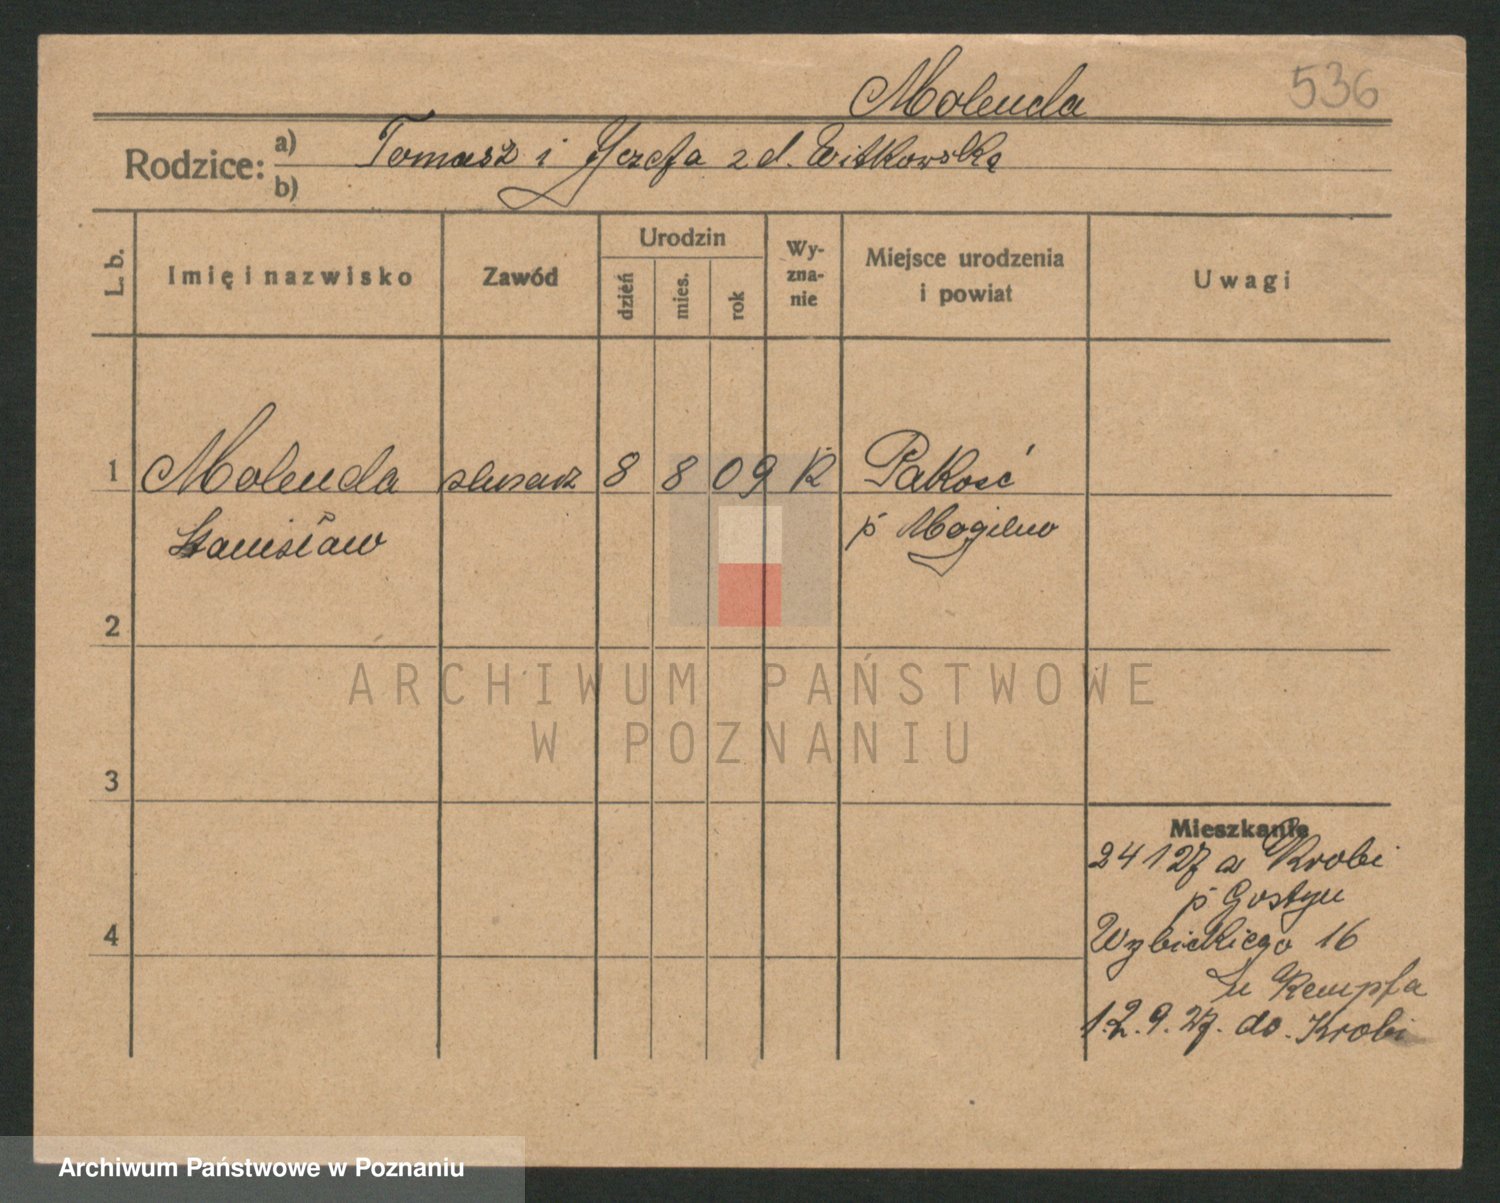 Molenda
536
Rodzice:
a) Tomasz i Józefa z d. Witkowska
b)
L. b.
Imię i nazwisko
Zawód
Urodzin
dzień
mies.
rok
Wy-
zna-
nie
Miejsce urodzenia
i powiat
Uwagi
1 Molenda ślusarz 8 8 09 K Pakość
Stanisław p Mogilno
2
3
4
ARCHIWUM PAŃSTWOWE
W POZNANIU
Mieszkanie
24 1 27 z Krobi
p Gostyń
Wybickiego 16
Kempfa
12.9.27. do. Krobi
Archiwum Państwowe w Poznaniu